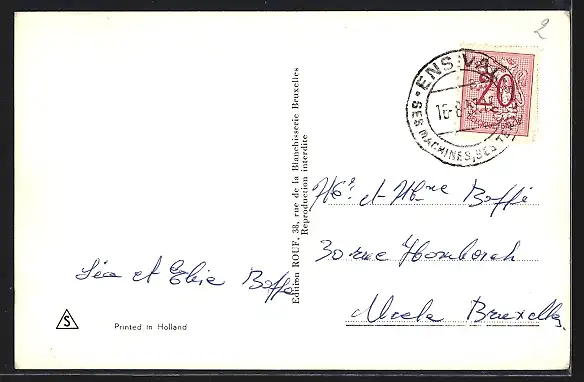 2
ENSIVAL
20
16-8
SES MACHINES, SES
Edition ROUF, 38, rue de la Blanchisserie Bruxelles
Reproduction interdite
Mr et Mme Boffé
30 rue Hombosch
Uccle Bruxelles
Léa et Elie Boffé
S
Printed in Holland